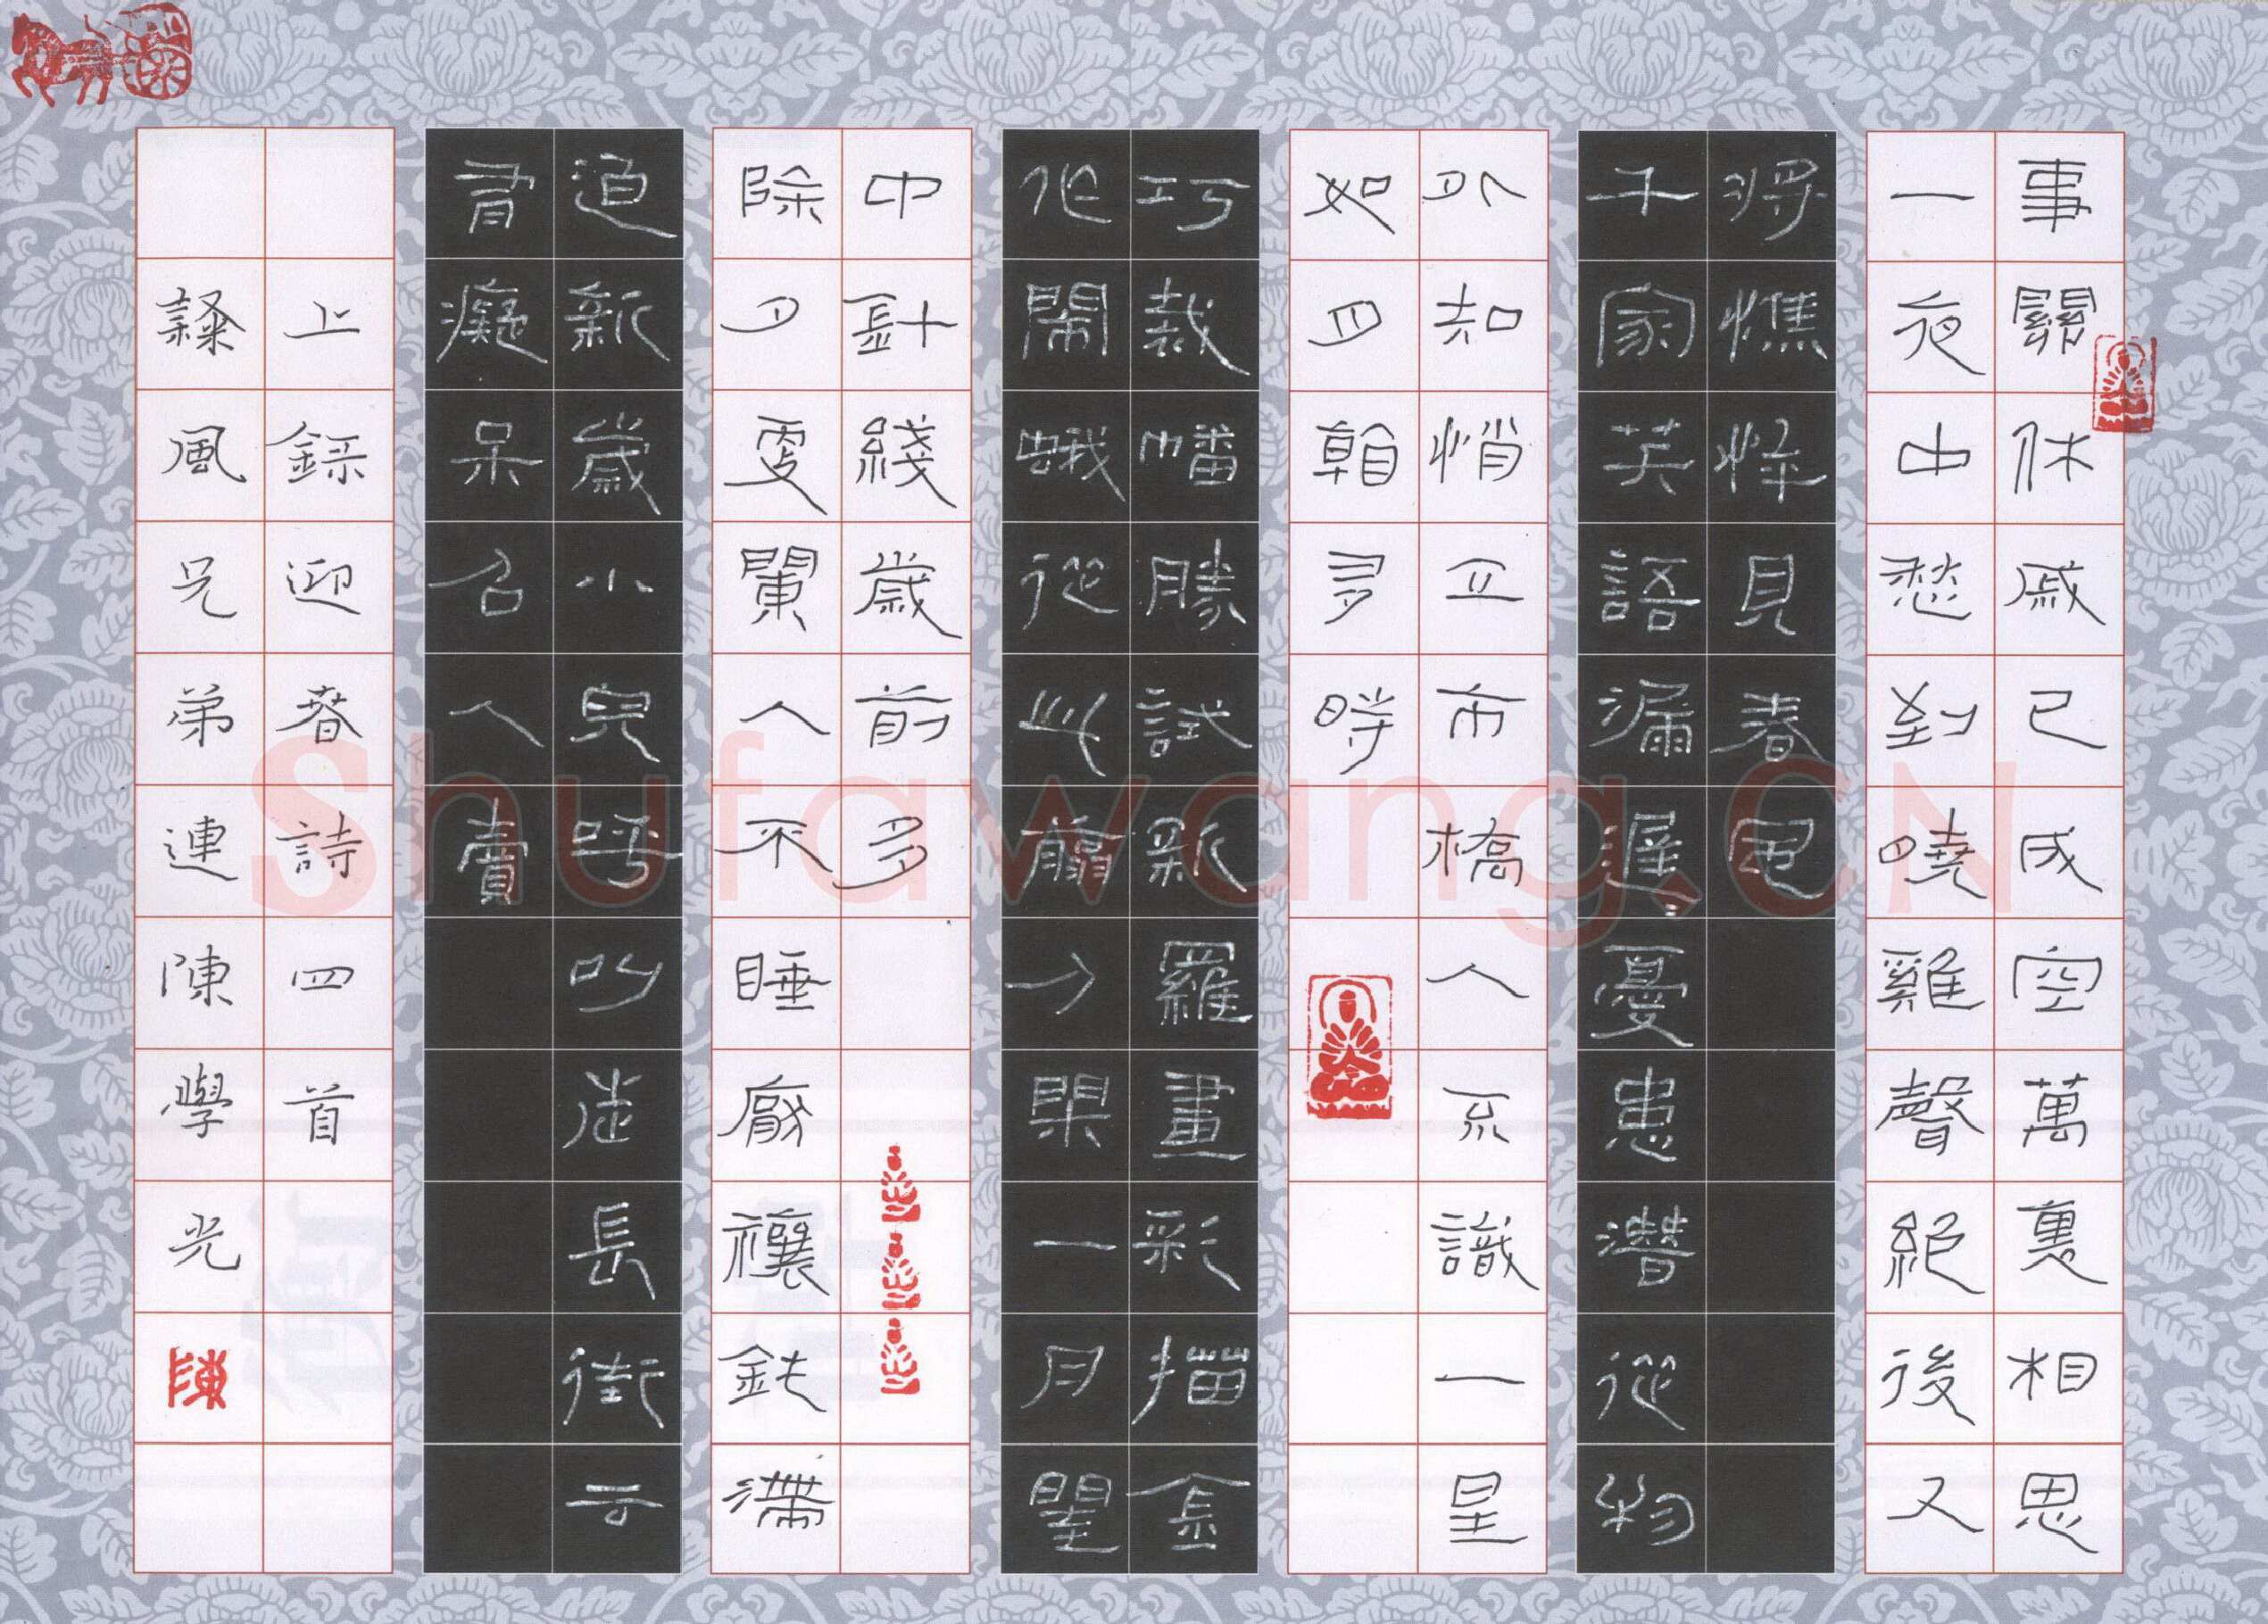 事關休戚已成空萬裏相思
一夜中愁到曉雞聲絕後又
將憔悴見春風
千家笑語漏遲〻憂患潛從物
外知悄立市橋人不識一星
如月看多時
巧裁幡勝試新羅畫彩描金
作鬧蛾從此翦刀閑一月閨
中針綫歲前多
除夕更闌人不睡厭禳鈍滯
迫新歲小兒呼叫走長街云
有癡呆召人賣
上錄迎春詩四首
隸風兄弟連陳學光
陳
Shufawang.CN